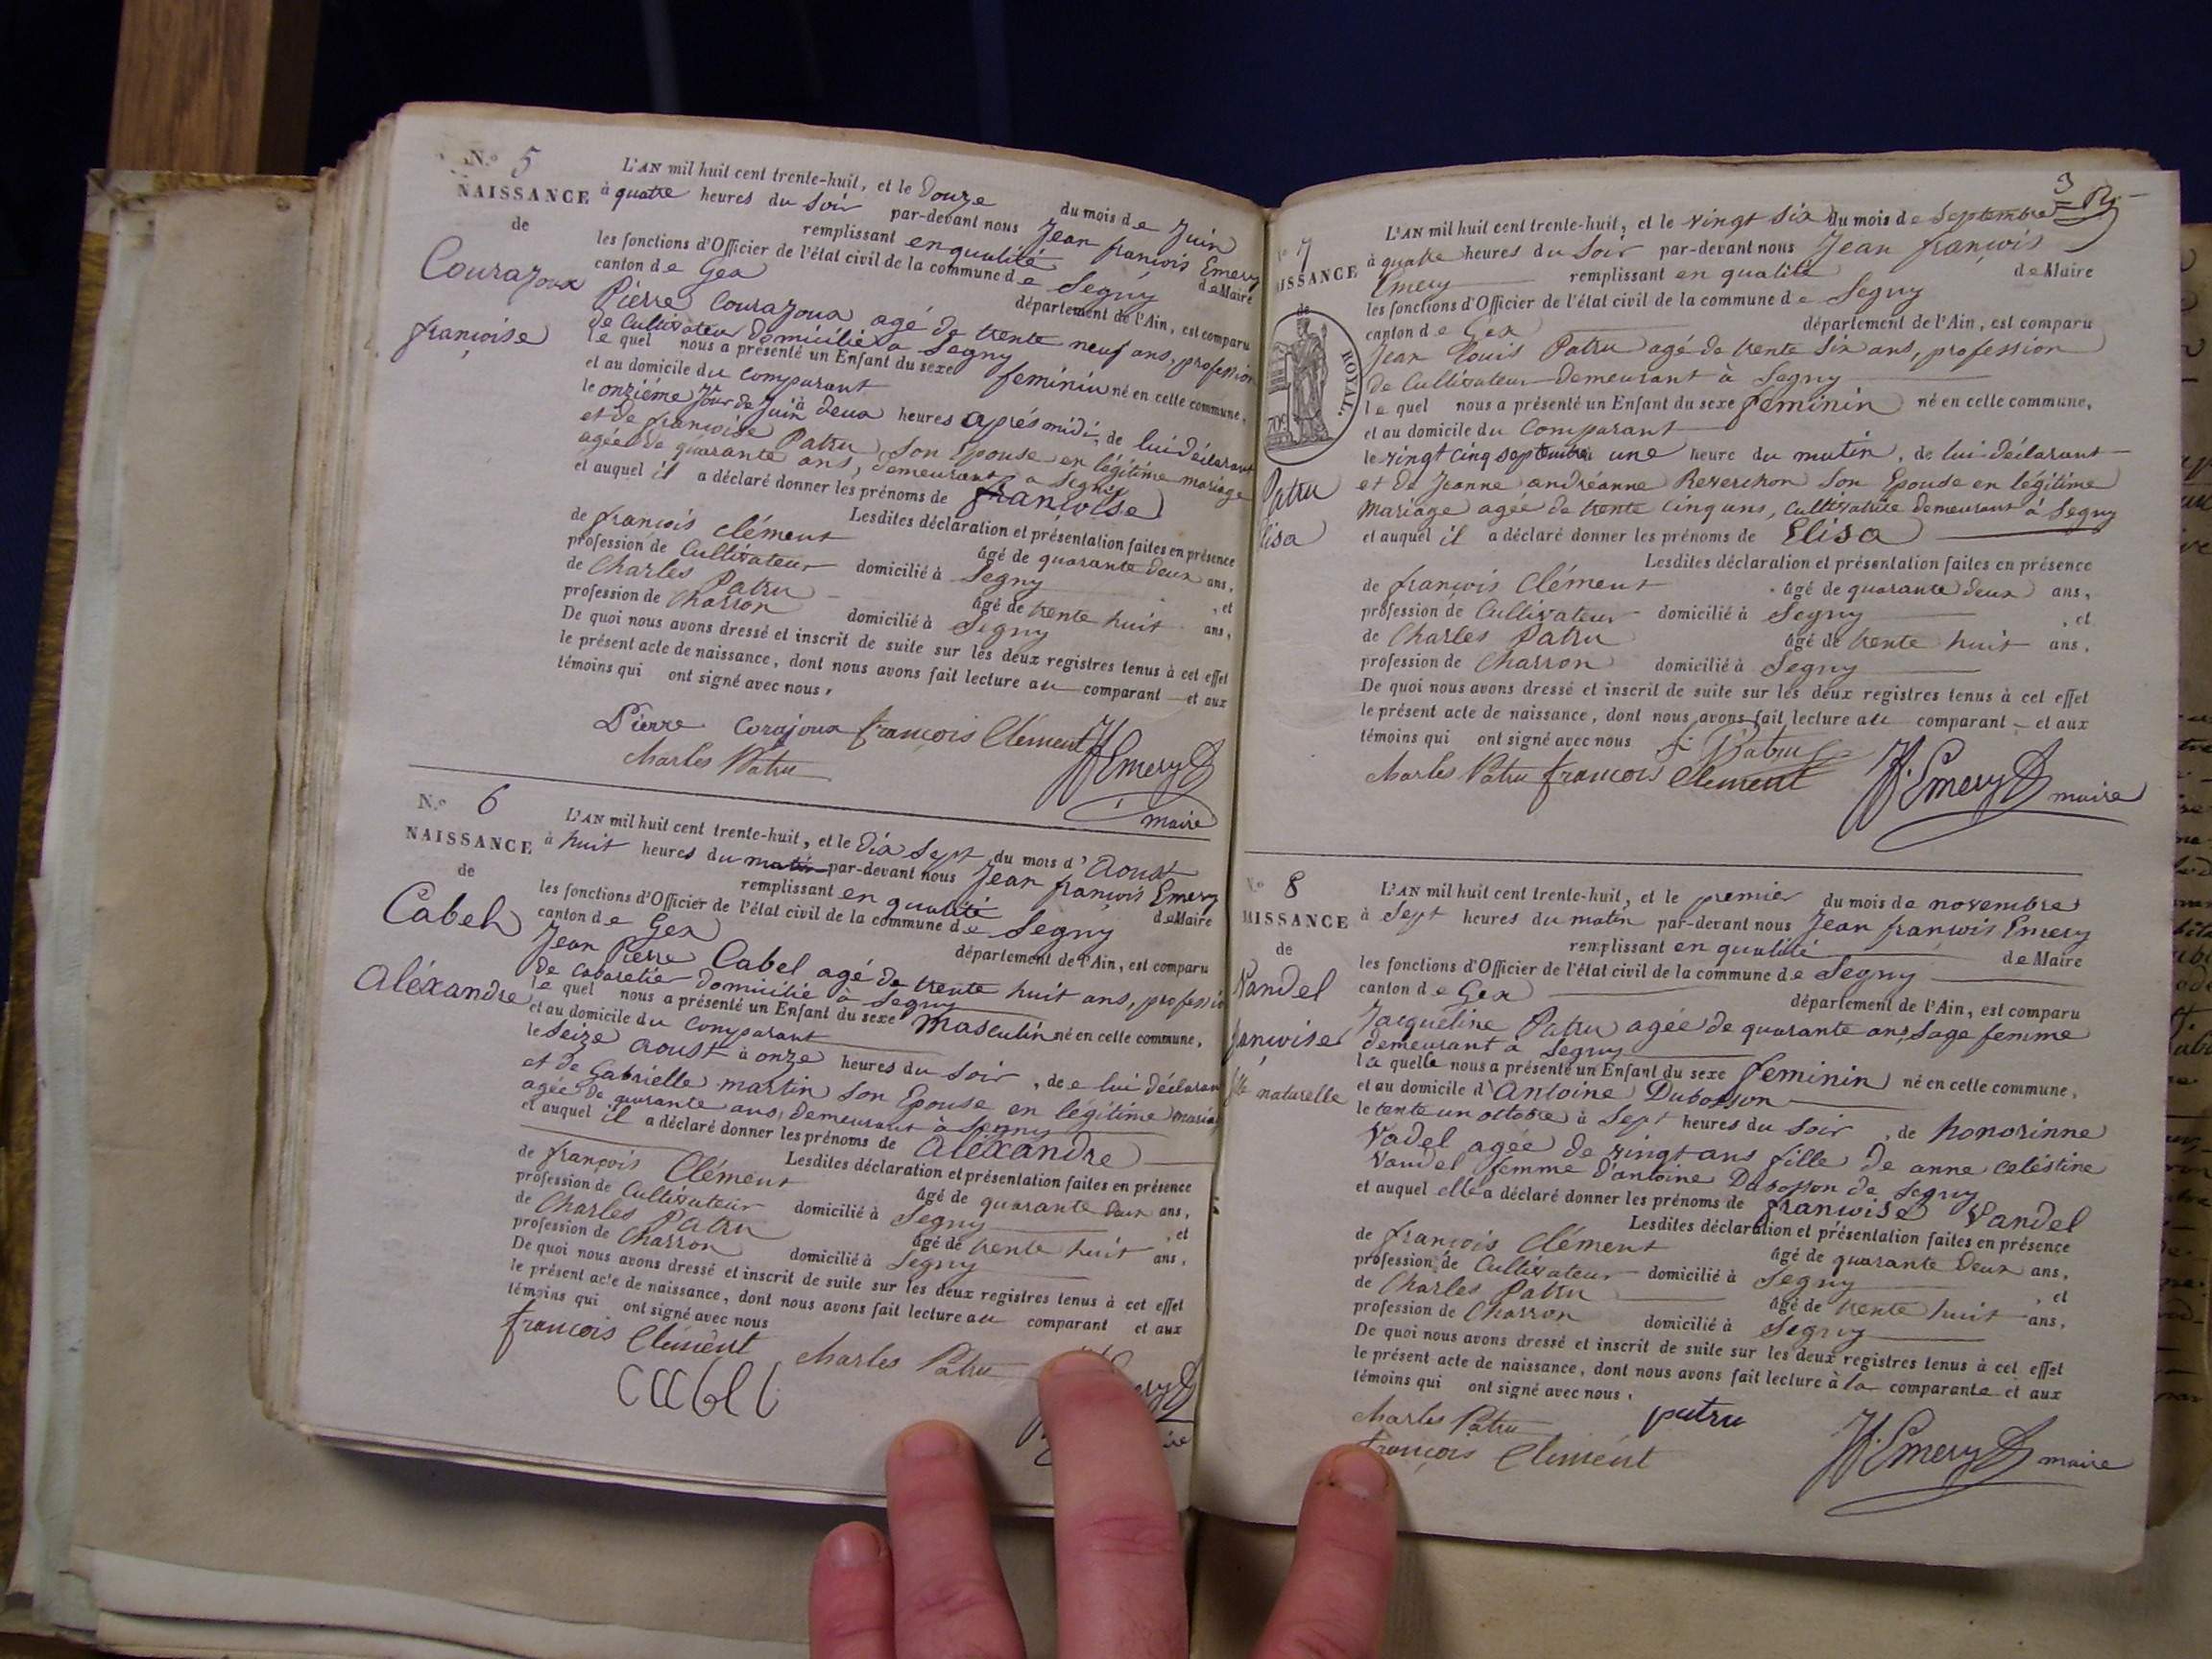 N.o 5
NAISSANCE
de
Courajoux
françoise
L'AN mil huit cent trente-huit, et le Douze du mois de Juin
à quatre heures du Soir par-devant nous Jean françois Emery
remplissant en qualité de Maire
les fonctions d'Officier de l'état civil de la commune de Segny
canton de Gex département de l'Ain, est comparu
Pierre Courajoux agé de trente neuf ans, profession
de Cultivateur domicilié à Segny
le quel nous a présenté un Enfant du sexe feminin né en cette commune,
et au domicile du comparant
le onzième Jour de Juin à deux heures après midi, de lui déclarant
et de françoise Patru son Epouse en légitime mariage
agée de quarante ans, demeurant à Segny
et auquel il a déclaré donner les prénoms de françoise
Lesdites déclaration et présentation faites en présence
de françois Clément âgé de quarante deux ans,
profession de Cultivateur domicilié à Segny , et
de Charles Patru âgé de trente huit ans,
profession de Charron domicilié à Segny
De quoi nous avons dressé et inscrit de suite sur les deux registres tenus à cet effet
le présent acte de naissance, dont nous avons fait lecture au comparant et aux
témoins qui ont signé avec nous,
Pierre Corajoux françois Clément Emery
Charles Patru maire
N.o 6
NAISSANCE
de
Cabel
Aléxandre
L'AN mil huit cent trente-huit, et le Dix Sept du mois d'Aoust
à huit heures du matin par-devant nous Jean françois Emery
remplissant en qualité de Maire
les fonctions d'Officier de l'état civil de la commune de Segny
canton de Gex département de l'Ain, est comparu
Jean Pierre Cabel agé de trente huit ans, professio
de Cabaretier domicilié à Segny
le quel nous a présenté un Enfant du sexe Masculin né en cette commune,
et au domicile du comparant
le Seize Aoust à onze heures du Soir , de lui déclarant
et de Gabrielle martin son Epouse en légitime mariage
agée de quarante ans, demeurant à Segny
et auquel il a déclaré donner les prénoms de Aléxandre
Lesdites déclaration et présentation faites en présence
de françois Clément âgé de quarante deux ans,
profession de Cultivateur domicilié à Segny , et
de Charles Patru âgé de trente huit ans,
profession de Charron domicilié à Segny
De quoi nous avons dressé et inscrit de suite sur les deux registres tenus à cet effet
le présent acte de naissance, dont nous avons fait lecture au comparant et aux
témoins qui ont signé avec nous
françois Clément Charles Patru
Cabel
3
7
ISSANCE
de
ROYAL.
Patru
lisa
L'AN mil huit cent trente-huit, et le vingt six du mois de Septembre
à quatre heures du Soir par-devant nous Jean françois
Emery remplissant en qualité de Maire
les fonctions d'Officier de l'état civil de la commune de Segny
canton de Gex département de l'Ain, est comparu
Jean Louis Patru agé de trente Six ans, profession
de Cultivateur Demeurant à Segny
le quel nous a présenté un Enfant du sexe feminin né en cette commune,
et au domicile du Comparant
le vingt cinq septembre une heure du matin, de lui déclarant
et de Jeanne andréanne Reverchon son Epouse en légitime
Mariage agée de trente cinq ans, Cultivatrice demeurant à Segny
et auquel il a déclaré donner les prénoms de Elisa
Lesdites déclaration et présentation faites en présence
de françois Clément âgé de quarante deux ans,
profession de Cultivateur domicilié à Segny , et
de Charles Patru âgé de trente huit ans,
profession de Charron domicilié à Segny
De quoi nous avons dressé et inscrit de suite sur les deux registres tenus à cet effet
le présent acte de naissance, dont nous avons fait lecture au comparant et aux
témoins qui ont signé avec nous Patru
Charles Patru françois Clément Emery maire
8
AISSANCE
de
Vandel
françoise
naturelle
L'AN mil huit cent trente-huit, et le premier du mois de novembre
à Sept heures du matin par-devant nous Jean françois Emery
remplissant en qualité de Maire
les fonctions d'Officier de l'état civil de la commune de Segny
canton de Gex département de l'Ain, est comparu
Jacqueline Patru agée de quarante ans, Sage femme
demeurant à Segny
la quelle nous a présenté un Enfant du sexe feminin né en cette commune,
et au domicile d'Antoine Dubosson
le trente un octobre à Sept heures du Soir , de honorinne
Vadel agée de vingt ans fille de anne celéstine
Vandel femme d'antoine Dubosson de Segny
et auquel elle a déclaré donner les prénoms de françoise Vandel
Lesdites déclaration et présentation faites en présence
de françois Clément âgé de quarante Deux ans,
profession de Cultivateur domicilié à Segny , et
de Charles Patru âgé de trente huit ans,
profession de Charron domicilié à Segny
De quoi nous avons dressé et inscrit de suite sur les deux registres tenus à cet effet
le présent acte de naissance, dont nous avons fait lecture à la comparante et aux
témoins qui ont signé avec nous,
Charles Patru patru
françois Clément Emery maire